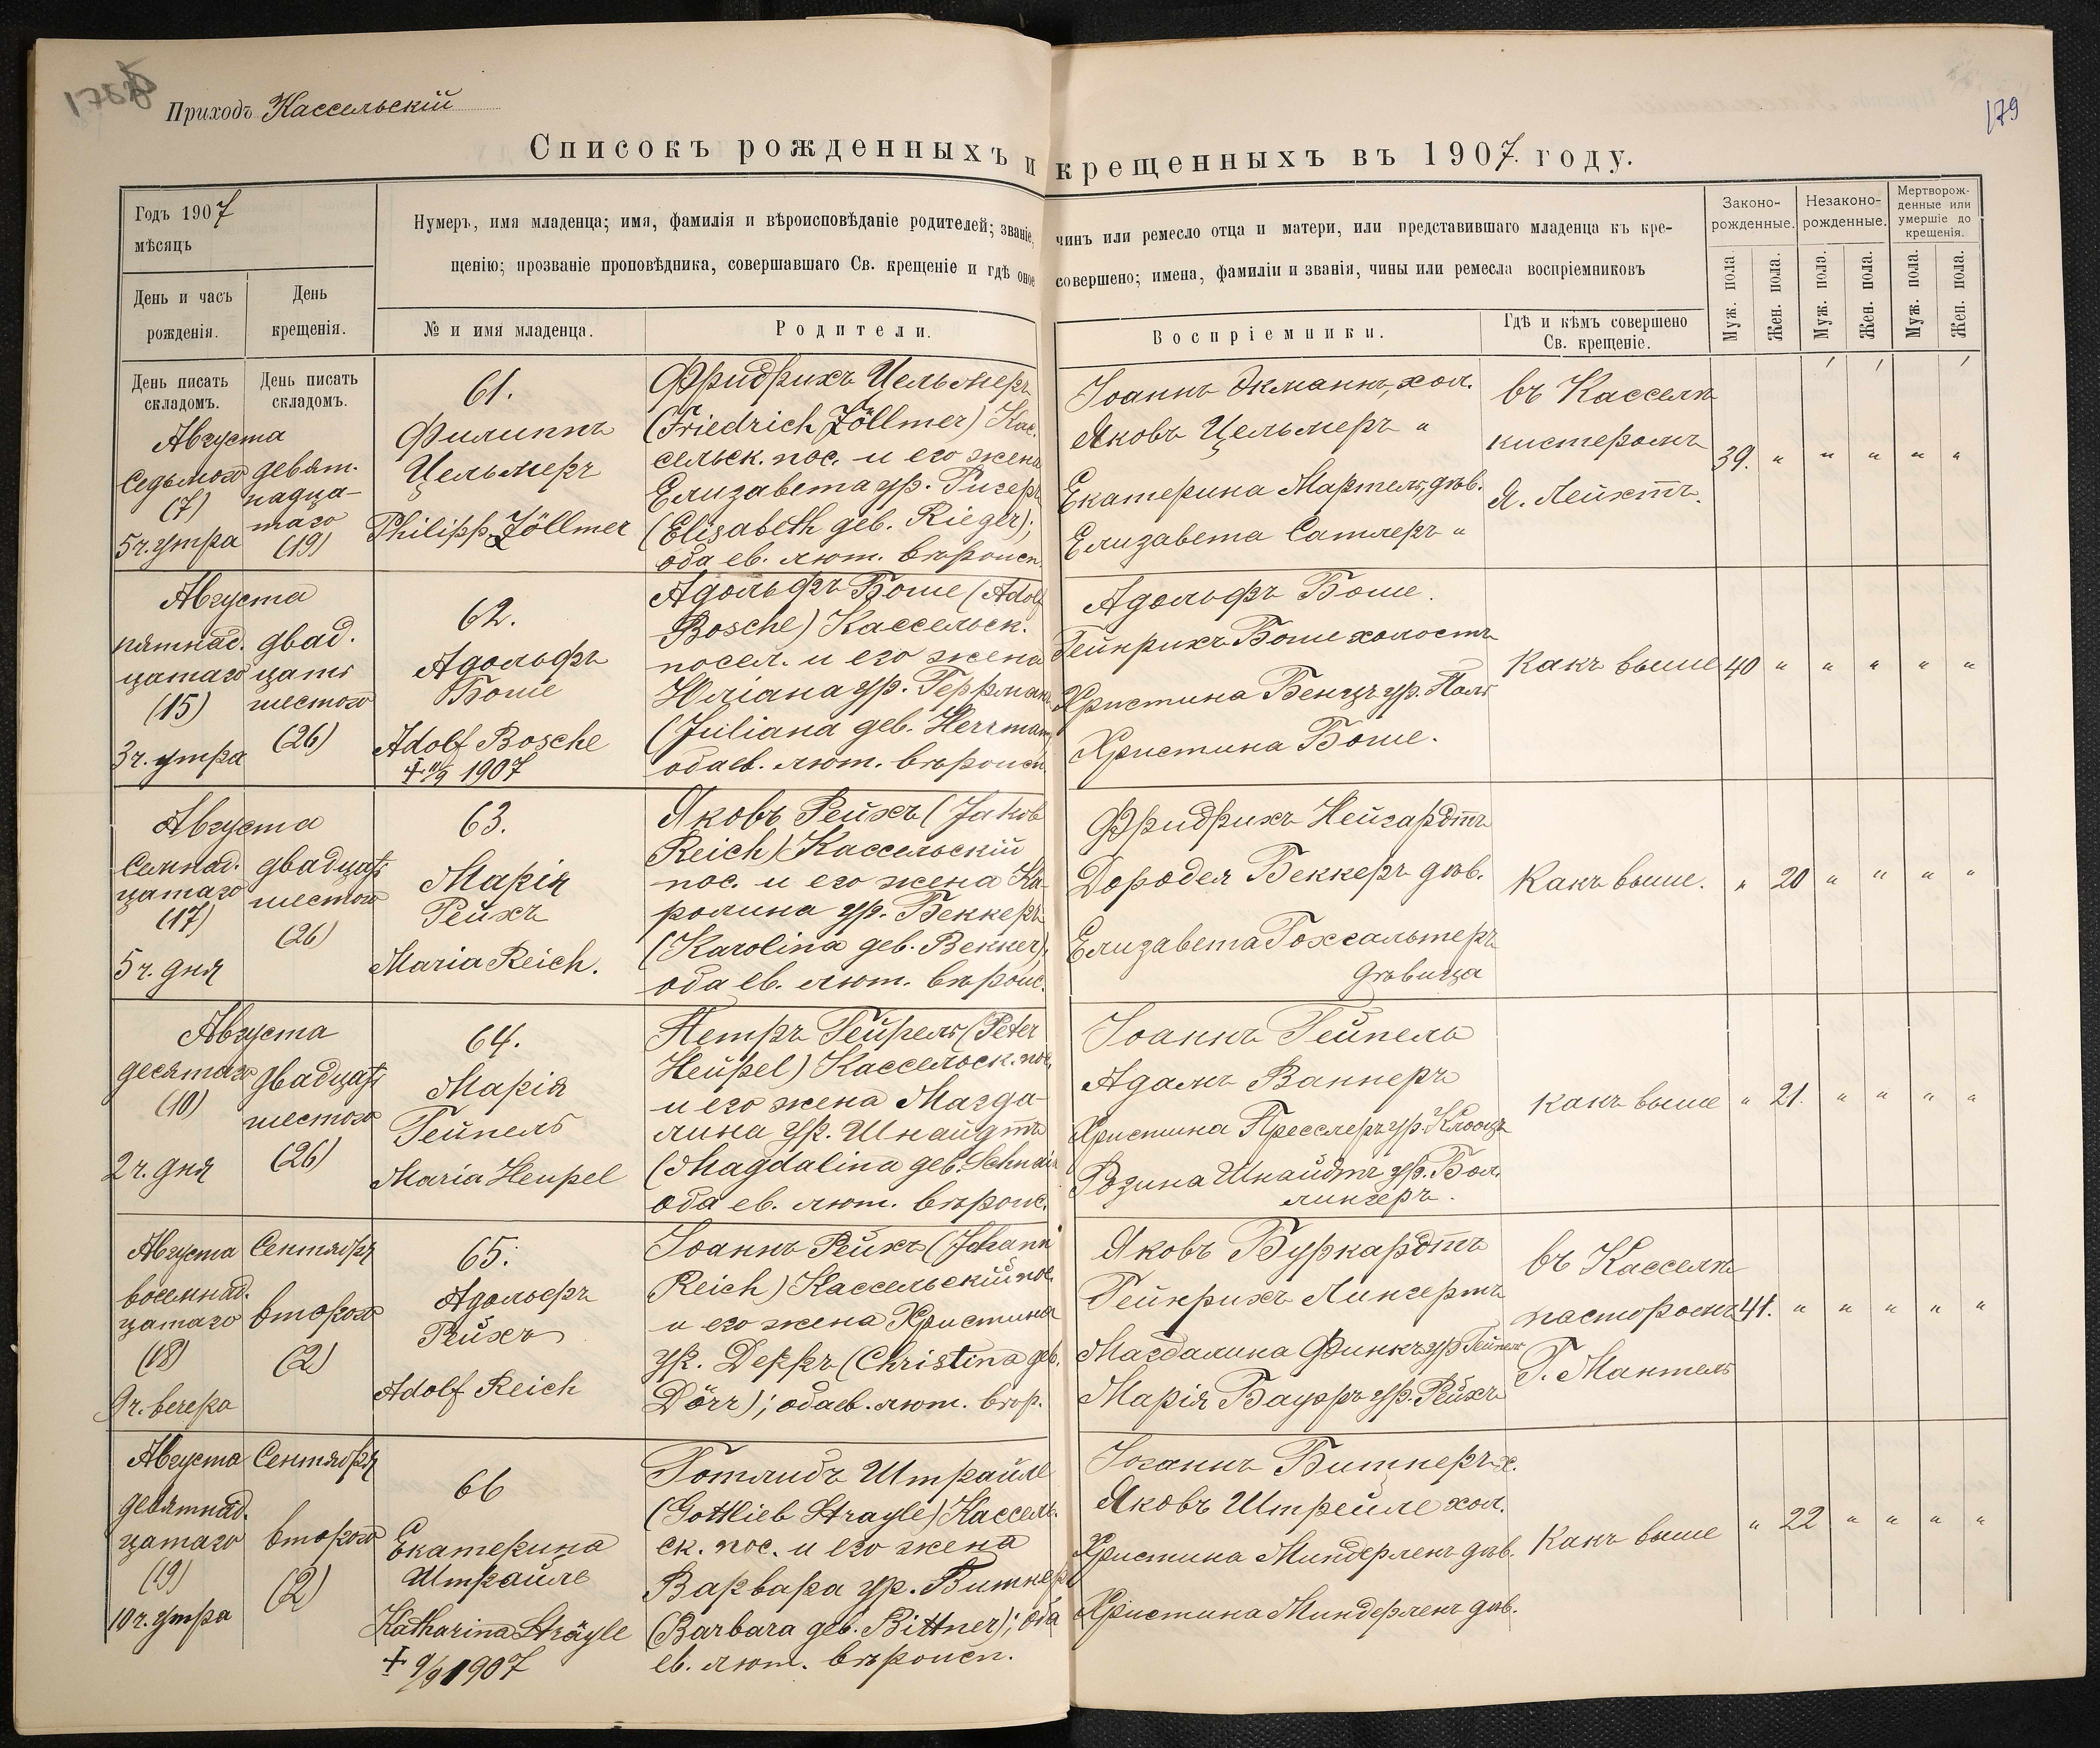 Приходъ Кассельскій
179
Списокъ рожденныхъ и крещенныхъ въ 1907. году.
Годъ 1907
мѣсяцъ
День и часъ
рожденія.
День
крещенія.
Нумеръ, имя младенца; имя, фамилія и вѣроисповѣданіе родителей; званіе, чинъ или ремесло отца и матери, или представившаго младенца къ кре-
щенію; прозваніе проповѣдника, совершавшаго Св. крещеніе и гдѣ оное совершено; имена, фамиліи и званія, чины или ремесла воспріемниковъ
№ и имя младенца.
Родители.
Воспріемники.
Гдѣ и кѣмъ совершено
Св. крещеніе.
Законо-
рожденные.
Незаконо-
рожденные.
Мертворож-
денные или
умершіе до
крещенія.
Муж. пола.
Жен. пола.
Муж. пола.
Жен. пола.
Муж. пола.
Жен. пола.
День писать
складомъ.
День писать
складомъ.
Августа
седьмого
(7)
5 ч. утра
девят.
надца-
таго
(19)
61.
Филиппъ
Цельмеръ
Philipp Zöllmer
Фридрихъ Цельмеръ
(Friedrich Zöllmer) Кас.
сельск. пос. и его жена
Елизавета ур. Ригеръ
(Elisabeth geb. Rieger);
оба ев. лют. вѣроисп.
Іоаннъ Экманнъ, хол.
Яковъ Цельмеръ "
Екатерина Мартель, дѣв.
Елизавета Сатлеръ "
въ Касселѣ
кистеромъ
Я. Лейхтъ.
39. " " " " "
Августа
пятнад.
цатаго
(15)
3 ч. утра
двад.
цать
шестого
(26)
62.
Адольфъ
Боше
Adolf Bosche
+ 11/9 1907
Адольфъ Боше (Adolf
Bosche) Кассельск.
посел. и его жена
Юліана ур. Геррманъ
(Juliana geb. Herrmann)
оба ев. лют. вѣроисп.
Адольфъ Боше.
Гейнрихъ Боше холостъ
Христина Бенцъ ур. Поль
Христина Боше.
Какъ выше
40 " " " " "
Августа
семнад.
цатаго
(17)
5 ч. дня
двадцать
шестого
(26)
63.
Марія
Рейхъ
Maria Reich.
Яковъ Рейхъ (Jakob
Reich) Кассельскій
пос. и его жена Ка-
ролина ур. Беккеръ
(Karolina geb. Bekker);
оба ев. лют. вѣроис.
Фридрихъ Нейгардтъ
Дородея Беккеръ дѣв.
Елизавета Гохгальтеръ
дѣвица
Какъ выше.
" 20 " " " "
Августа
десятаго
(10)
2 ч. дня
двадцать
шестого
(26)
64.
Марія
Гейпель
Maria Heupel
Петръ Гейпель (Peter
Heupel) Кассельск. пос.
и его жена Магда-
лина ур. Шнайдтъ
(Magdalina geb. Schnaid
оба ев. лют. вѣроис.
Іоаннъ Гейпель
Адамъ Ваннеръ
Христина Пресслеръ ур. Клоозъ
Розина Шнайдтъ ур. Бол.
лингеръ.
какъ выше
" 21. " " " "
Августа
восемнад.
цатаго
(18)
9 ч. вечера
Сентября
второго
(2)
65.
Адольфъ
Рейхъ
Adolf Reich
Іоаннъ Рейхъ (Johann
Reich) Кассельскій пос.
и его жена Христина
ур. Дерръ (Christina geb.
Dörr); оба ев. лют. вѣр.
Яковъ Буркардтъ
Гейнрихъ Лингертъ
Магдалина Финкъ ур. Гейпель
Марія Бауэръ ур. Рейхъ
въ Касселѣ
пасторомъ
Г. Мантель
41. " " " " "
Августа
девятнад.
цатаго
(19)
10 ч. утра
Сентября
второго
(2)
66
Екатерина
Штрайле
Katharina Sträyle
+ 9/9 1907
Готлибъ Штрайле
(Gottlieb Strayle) Кассель.
ск. пос. и его жена
Варвара ур. Битнеръ
(Barbara geb. Bittner); оба
ев. лют. вѣроисп.
Іоганнъ Битнеръ х.
Яковъ Штрейле хол.
Христина Миндерленъ дѣв.
Христина Миндерленъ дѣв.
Какъ выше
" 22 " " " "